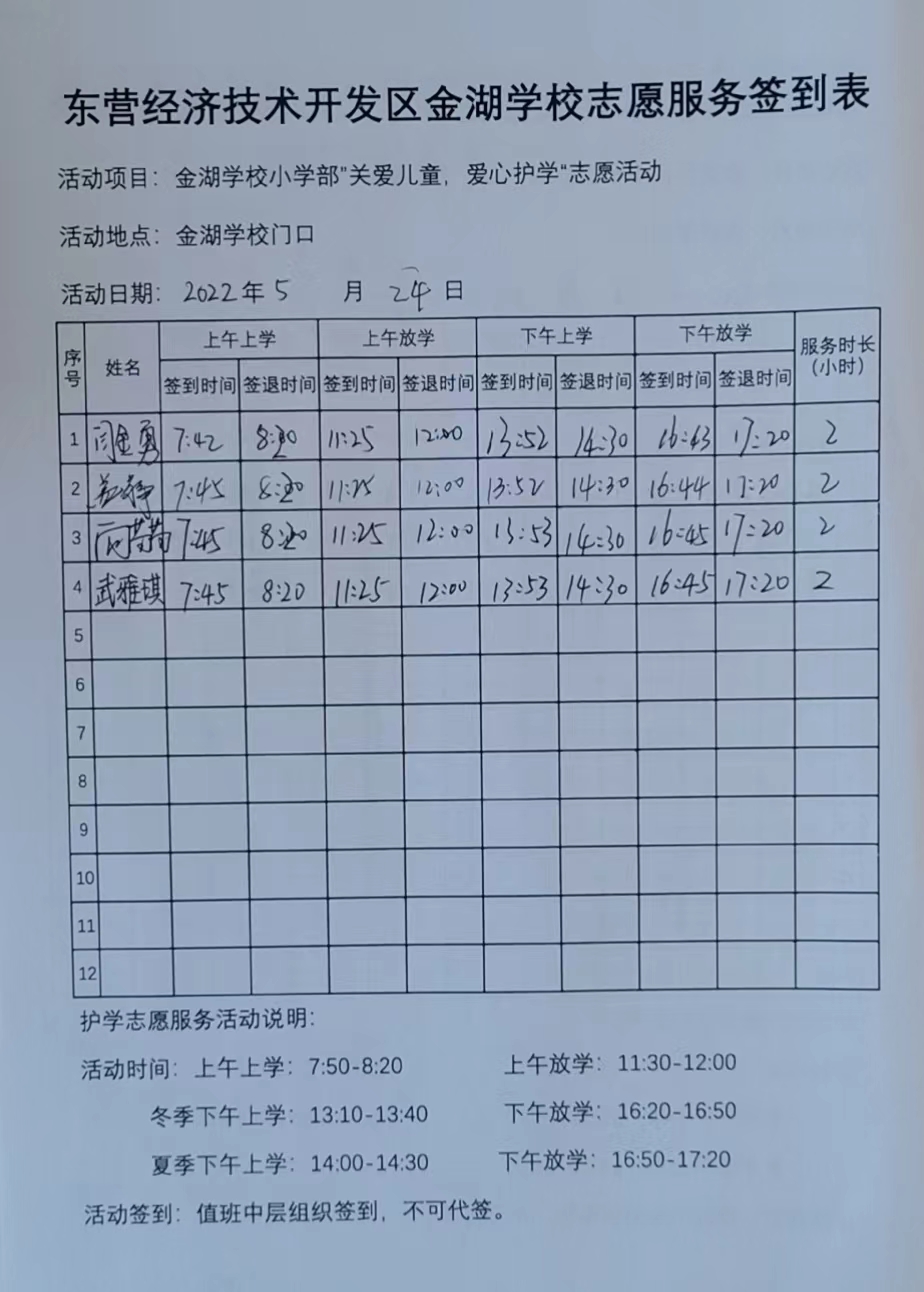 东营经济技术开发区金湖学校志愿服务签到表
活动项目：金湖学校小学部"关爱儿童，爱心护学"志愿活动
活动地点：金湖学校门口
活动日期：2022年5 月 24日
序号 姓名 上午上学 上午放学 下午上学 下午放学 服务时长（小时）
签到时间 签退时间 签到时间 签退时间 签到时间 签退时间 签到时间 签退时间
1 闫金勇 7:42 8:20 11:25 12:00 13:52 14:30 16:43 17:20 2
2 7:45 8:20 11:25 12:00 13:52 14:30 16:44 17:20 2
3 7:45 8:20 11:25 12:00 13:53 14:30 16:45 17:20 2
4 武雅琪 7:45 8:20 11:25 12:00 13:53 14:30 16:45 17:20 2
5
6
7
8
9
10
11
12
护学志愿服务活动说明：
活动时间：上午上学：7:50-8:20 上午放学：11:30-12:00
冬季下午上学：13:10-13:40 下午放学：16:20-16:50
夏季下午上学：14:00-14:30 下午放学：16:50-17:20
活动签到：值班中层组织签到，不可代签。